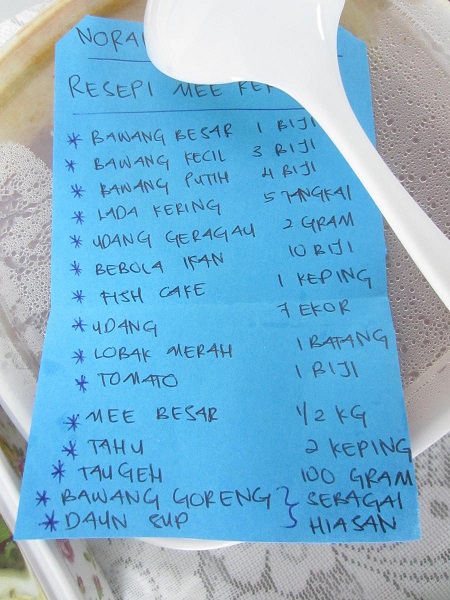 RESEPI MEE
* BAWANG BESAR 1 BIJI
* BAWANG KECIL 3 BIJI
* BAWANG PUTIH 4 BIJI
* LADA KERING 5 TANGKAI
* UDANG GERAGAU 2 GRAM
* BEBOLA IKAN 10 BIJI
* FISH CAKE 1 KEPING
* UDANG 7 EKOR
* LOBAK MERAH 1 BATANG
* TOMATO 1 BIJI
* MEE BESAR 1/2 KG
* TAHU 2 KEPING
* TAUGEH 100 GRAM
* BAWANG GORENG } SEBAGAI
* DAUN SUP HIASAN